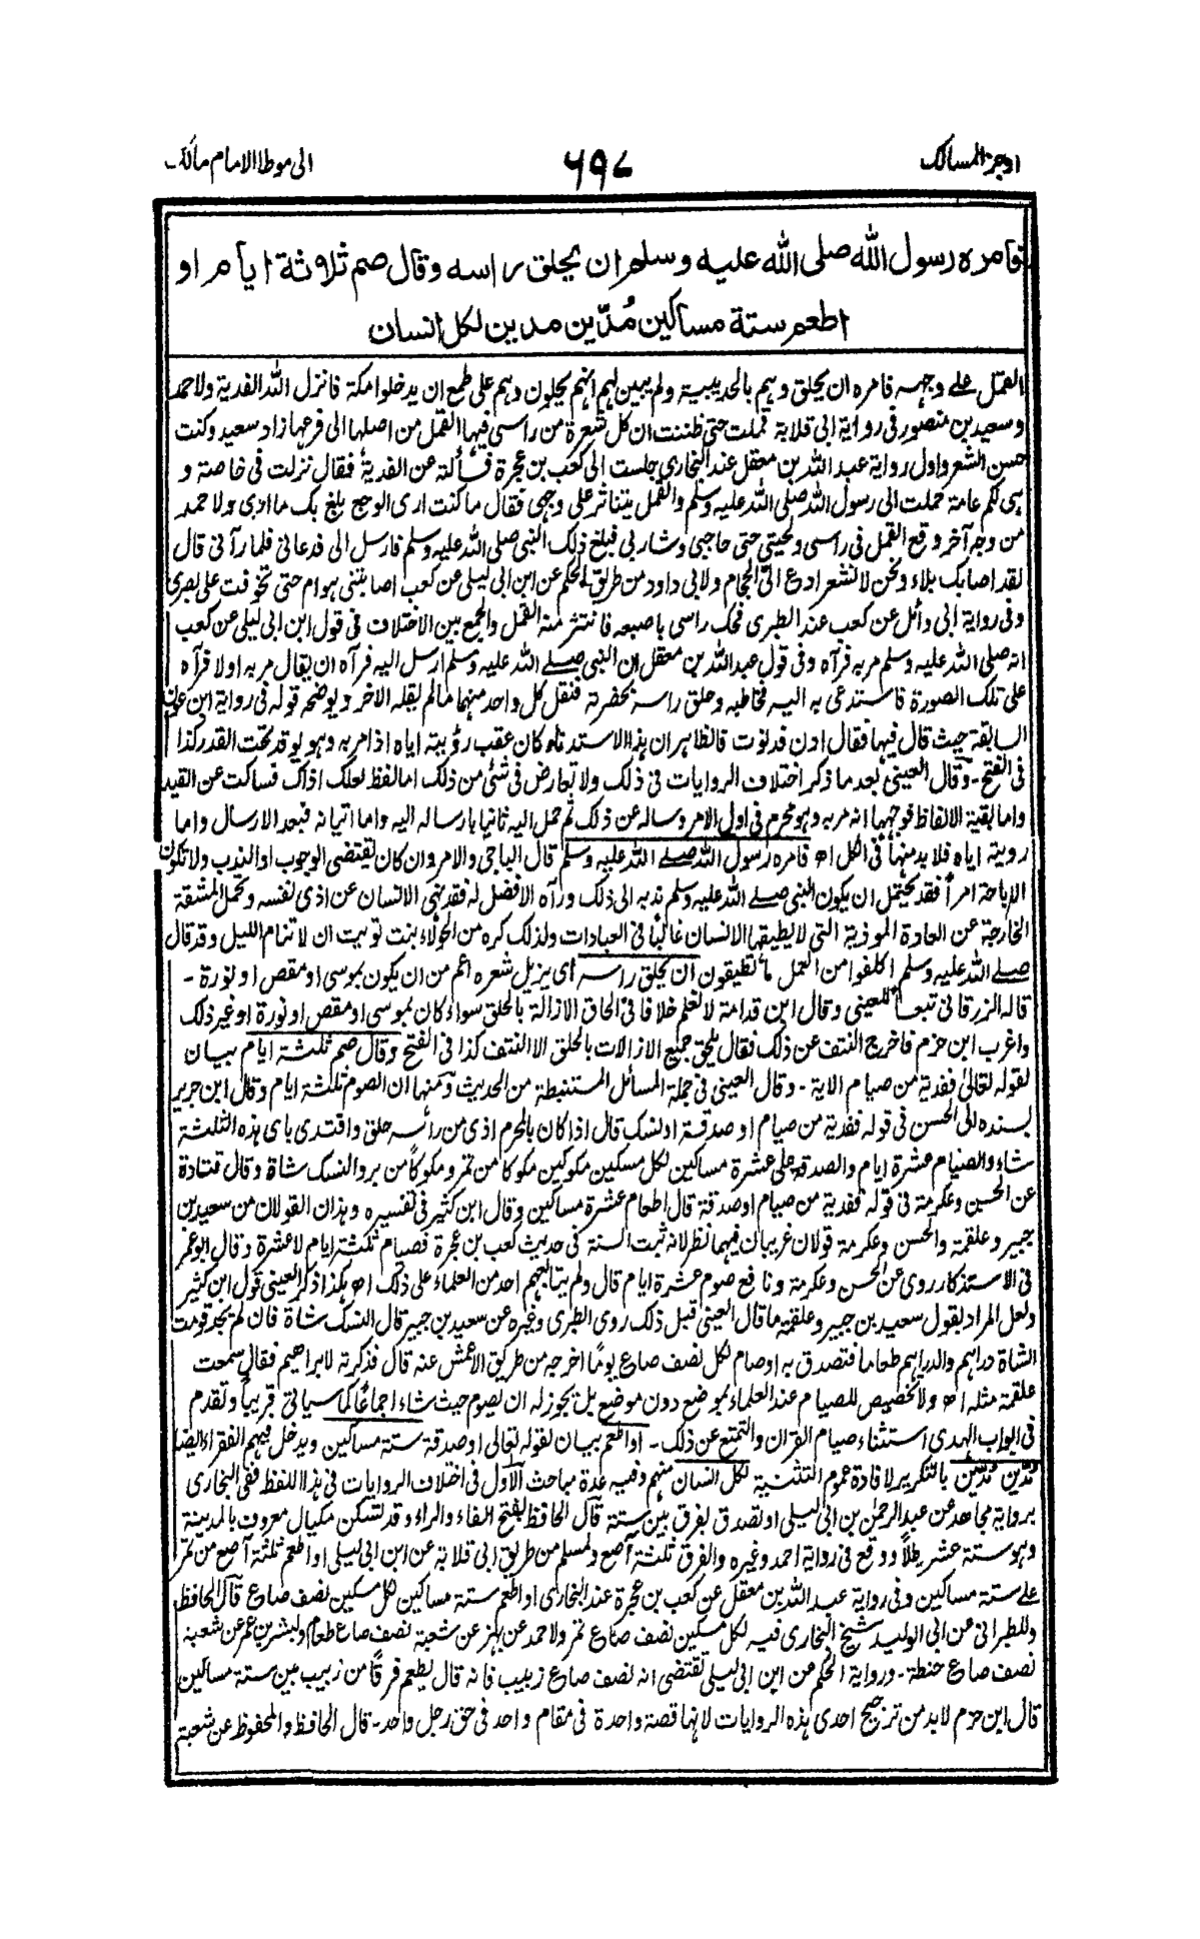 اوجز المسالك
٦٩٧
الى موطا الامام مالك
فامره رسول الله صلى الله عليه وسلم ان يحلق راسه وقال صم ثلاثة ايام او
اطعم ستة مساكين مُدّين مدين لكل انسان
القمل على وجهه فامره ان يحلق وهم بالحديبية ولم يبين لهم انهم يحلون وهم على طمع ان يدخلوا مكة فانزل الله الفدية ولاحمد
وسعيد بن منصور فى رواية ابى قلابة قملت حتى ظننت ان كل شعرة من راسى فيها القمل من اصلها الى فرعها زاد سعيد وكنت
حسن الشعر واول رواية عبد الله بن معقل عند البخارى جلست الى كعب بن عجرة فسألته عن الفدية فقال نزلت فى خاصة و
هى لكم عامة حملت الى رسول الله صلى الله عليه وسلم والقمل يتناثر على وجهى فقال ما كنت ارى الوجع بلغ بك ما ارى ولاحمد
من وجه آخر وقع القمل فى راسى ولحيتى حتى حاجبى وشاربى فبلغ ذلك النبى صلى الله عليه وسلم فارسل الى فدعانى فلما رآنى قال
لقد اصابك بلاء ونحن لا نشعر ادع الىّ الحجام ولابى داود من طريق الحكم عن ابن ابى ليلى عن كعب اصابتنى هوام حتى تخوفت على بصرى
وفى رواية ابى وائل عن كعب عند الطبرى فحك راسى باصبعه فانتثر منه القمل والجمع بين الاختلاف فى قول ابن ابى ليلى عن كعب
انه صلى الله عليه وسلم مر به فرآه وفى قول عبد الله بن معقل ان النبى صلے الله عليه وسلم ارسل اليه فرآه ان يقال مر به اولا فرآه
على تلك الصورة فاستدعى به اليه فخاطبه وحلق راسه بحضرته فنقل كل واحد منهما ما لم ينقله الاخر ويوضحه قوله فى رواية ابن عون
السابقة حيث قال فيها فقال ادن فدنوت فالظاهر ان هذا الاستدناء كان عقب رؤيته اياه اذ مر به وهو يوقد تحت القدر كذا
فى الفتح - وقال العينى بعد ما ذكر اختلاف الروايات فى ذلك ولا تعارض فى شئ من ذلك اما لفظ لعلك اذاك فساكت عن القيد
واما بقية الالفاظ فوجهها انه مر به وهو محرم فى اول الامر وساله عن ذلك ثم حمل اليه ثانيا بارساله اليه واما اتيانه فبعد الارسال واما
رويته اياه فلا بد منها فى الكل اھ فامره رسول الله صلے الله عليه وسلم قال الباجى والامر وان كان يقتضى الوجوب او الندب ولا تكون
الاباحة امراً فقد يحتمل ان يكون النبى صلے الله عليه وسلم ندبه الى ذلك ورآه الافضل له فقد نهى الانسان عن اذى نفسه وتحمل المشقة
الخارجة عن العادة الموذية التى لا يطيقها الانسان غالباً فى العبادات ولذلك كره من الحولاء بنت تويت ان لا تنام الليل وقد قال
صلے الله عليه وسلم اكلفوا من العمل ما تطيقون ان يحلق راسه اى يزيل شعره اعم من ان يكون بموسى او مقص او نورة -
قاله الزرقانى تبعاً للعينى وقال ابن قدامة لا نعلم خلافا فى الحاق الازالة بالحلق سواء كان بموسى او مقص او نورة او غير ذلك
واغرب ابن حزم فاخرج النتف عن ذلك فقال يلحق جميع الازالات بالحلق الا النتف كذا فى الفتح وقال صم ثلثة ايام بيان
لقوله تعالى ففدية من صيام الاية - وقال العينى فى جملة المسائل المستنبطة من الحديث ومنها ان الصوم ثلثة ايام وقال ابن جرير
بسنده الى الحسن فى قوله ففدية من صيام او صدقة او نسك قال اذا كان بالمحرم اذى من رأسه حلق وافتدى باى هذه الثلثة
شاء والصيام عشرة ايام والصدقة على عشرة مساكين لكل مسكين مكوكين مكوكا من تمر ومكوكاً من بر والنسك شاة وقال قتادة
عن الحسن وعكرمة فى قوله ففدية من صيام او صدقة قال اطعام عشرة مساكين وقال ابن كثير فى تفسيره وهذان القولان من سعيد بن
جبير وعلقمة والحسن وعكرمة قولان غريبان فيهما نظر لانه ثبت السنة فى حديث كعب بن عجرة فصيام ثلثة ايام لا عشرة وقال ابو عمر
فى الاستذكار روى عن الحسن وعكرمة ونافع صوم عشرة ايام قال ولم يتابعهم احد من العلماء على ذلك اھ هكذا ذكر العينى قول ابن كثير
ولعل المراد بقول سعيد بن جبير وعلقمة ما قال العينى قبل ذلك روى الطبرى وغيره عن سعيد بن جبير قال النسك شاة فان لم يجد قومت
الشاة دراهم والدراهم طعاما فتصدق به او صام لكل نصف صاع يومًا اخرجه من طريق الاعمش عنه قال فذكرته لابراهيم فقال سمعت
علقمة مثله اھ ولا تخصيص للصيام عند العلماء بموضع دون موضع بل يجوز له ان يصوم حيث شاء اجماعًا كما سياتى قريباً وتقدم
فى ابواب الهدى استثناء صيام القران والتمتع عن ذلك - او اطعم بيان لقوله تعالى او صدقة ستة مساكين ويدخل فيهم الفقراء ايضا
مُدّين مُدّين بالتكرير لافادة عموم التثنية لكل انسان منهم وفيه عدة مباحث الاول فى اختلاف الروايات فى هذا اللفظ ففى البخارى
برواية مجاهد عن عبد الرحمن بن ابى ليلى او تصدق بفرق بين ستة قال الحافظ بفتح الفاء والراء وقد تسكن مكيال معروف بالمدينة
وهو ستة عشر رطلاً ووقع فى رواية احمد وغيره والفرق ثلثة آصع ولمسلم من طريق ابى قلابة عن ابن ابى ليلى او اطعم ثلثة آصع من تمر
على ستة مساكين وفى رواية عبد الله بن معقل عن كعب بن عجرة عند البخارى او اطعم ستة مساكين لكل مسكين نصف صاع قال الحافظ
وللطبرانى عن ابى الوليد شيخ البخارى فيه لكل مسكين نصف صاع تمر ولاحمد عن بهز عن شعبة نصف صاع طعام ولبشر بن عمر عن شعبة
نصف صاع حنطة - ورواية الحكم عن ابن ابى ليلى تقتضى انه نصف صاع زبيب فانه قال يطعم فرقاً من زبيب بين ستة مساكين
قال ابن حزم لا بد من ترجيح احدى هذه الروايات لانها قصة واحدة فى مقام واحد فى حق رجل واحد - قال الحافظ والمحفوظ عن شعبة